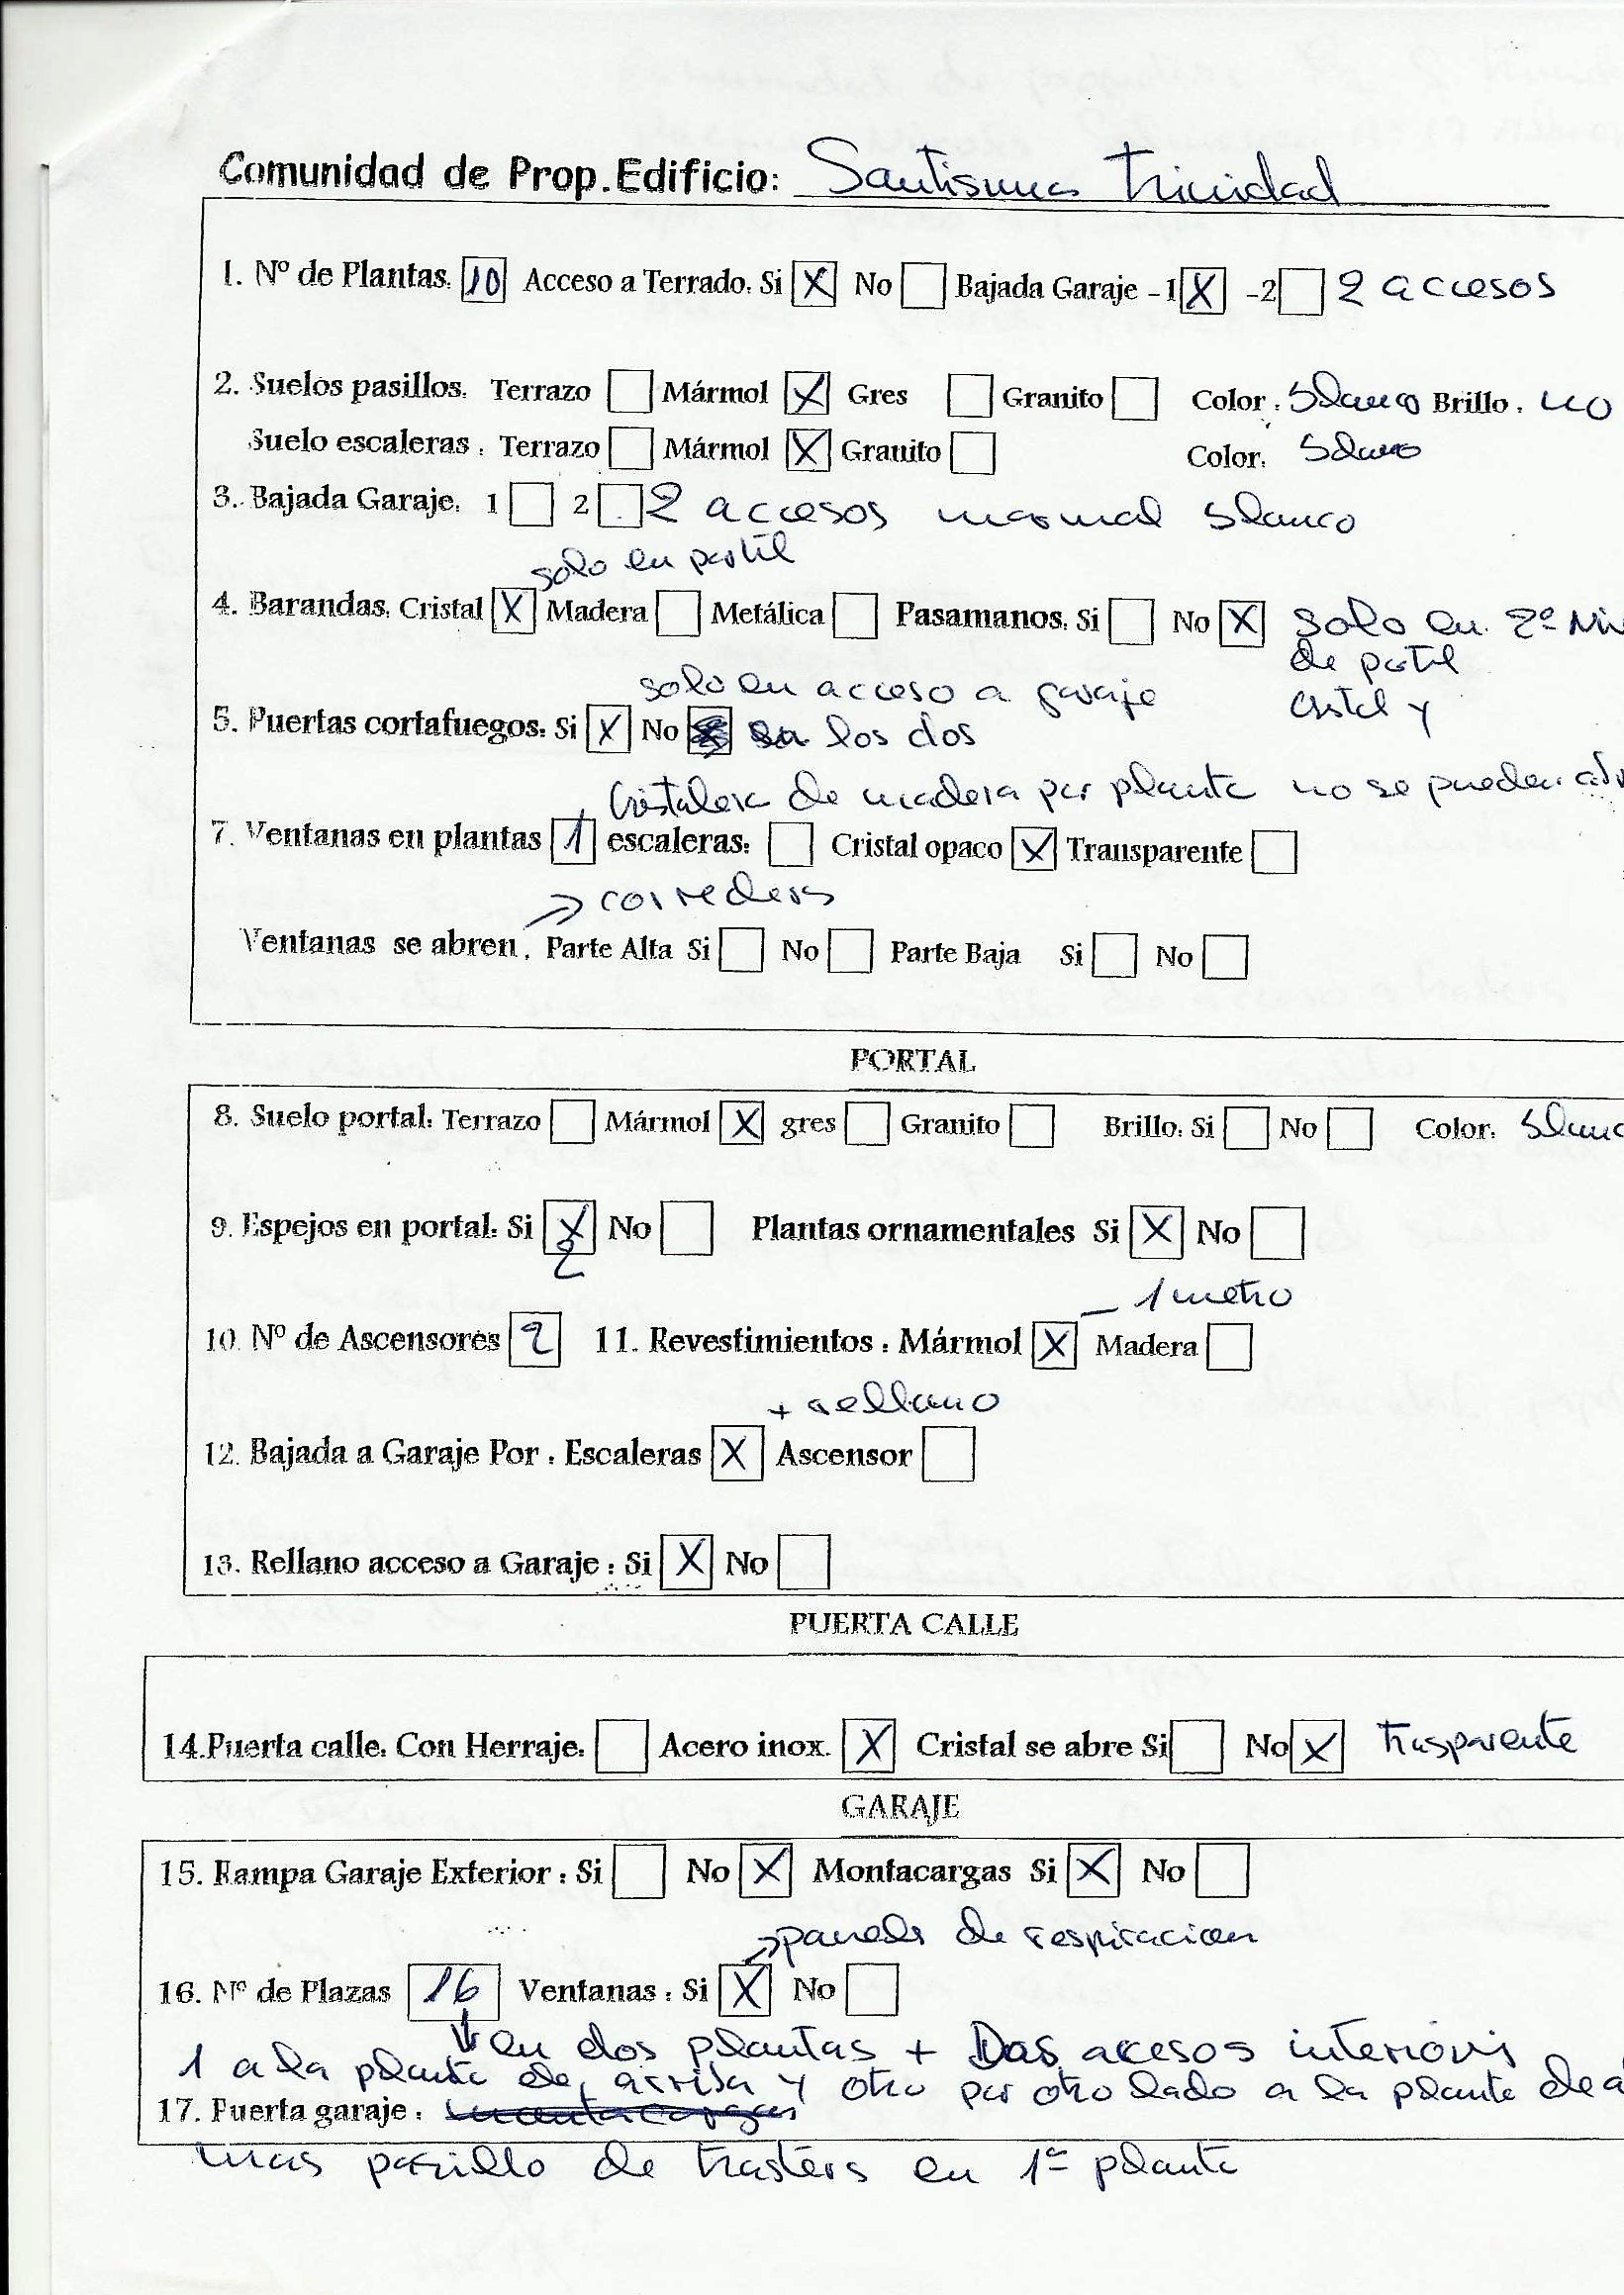 Comunidad de Prop.Edificio: Santisima trinidad
1. Nº de Plantas: 10 Acceso a Terrado: Si X No Bajada Garaje -1 X -2 2 accesos
2. Suelos pasillos: Terrazo Mármol X Gres Granito Color: blanco Brillo: no
Suelo escaleras: Terrazo Mármol X Granito Color: blanco
3. Bajada Garaje: 1 2 2 accesos marmal blanco
solo en portal
4. Barandas: Cristal X Madera Metálica Pasamanos: Si No X solo en 2º
de portal
solo en acceso a garaje cristal y
5. Puertas cortafuegos: Si X No en los dos
Cristalera de madera por planta no se pueden
7. Ventanas en plantas 1 escaleras: Cristal opaco X Transparente
→ correderas
Ventanas se abren: Parte Alta Si No Parte Baja Si No
PORTAL
8. Suelo portal: Terrazo Mármol X gres Granito Brillo: Si No Color:
9. Espejos en portal: Si X No Plantas ornamentales Si X No
2
1 metro
10. Nº de Ascensores 2 11. Revestimientos: Mármol X Madera
+ rellano
12. Bajada a Garaje Por: Escaleras X Ascensor
13. Rellano acceso a Garaje: Si X No
PUERTA CALLE
14.Puerta calle: Con Herraje: Acero inox. X Cristal se abre Si No X Trasparente
GARAJE
15. Rampa Garaje Exterior: Si No X Montacargas Si X No
→ panels de respiracion
16. Nº de Plazas 16 Ventanas: Si X No
↓ en dos plantas + Dos accesos interioris
1 a la planta de arriba y otro por otro lado a la planta de
17. Puerta garaje:
mas pasillo de trasteros en 1ª planta